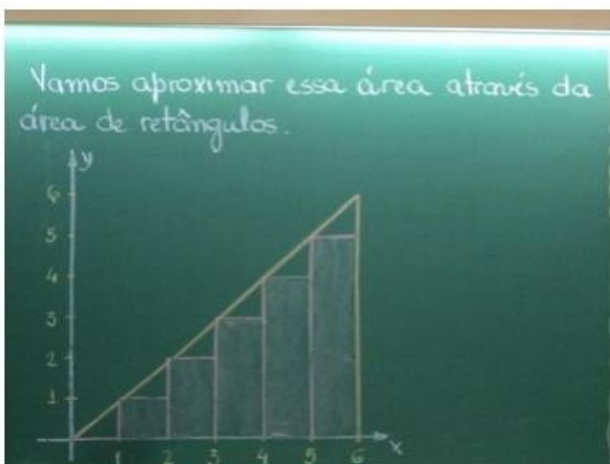 Vamos aproximar essa área através da
área de retângulos.
y
6
5
4
3
2
1
1 2 3 4 5 6 x